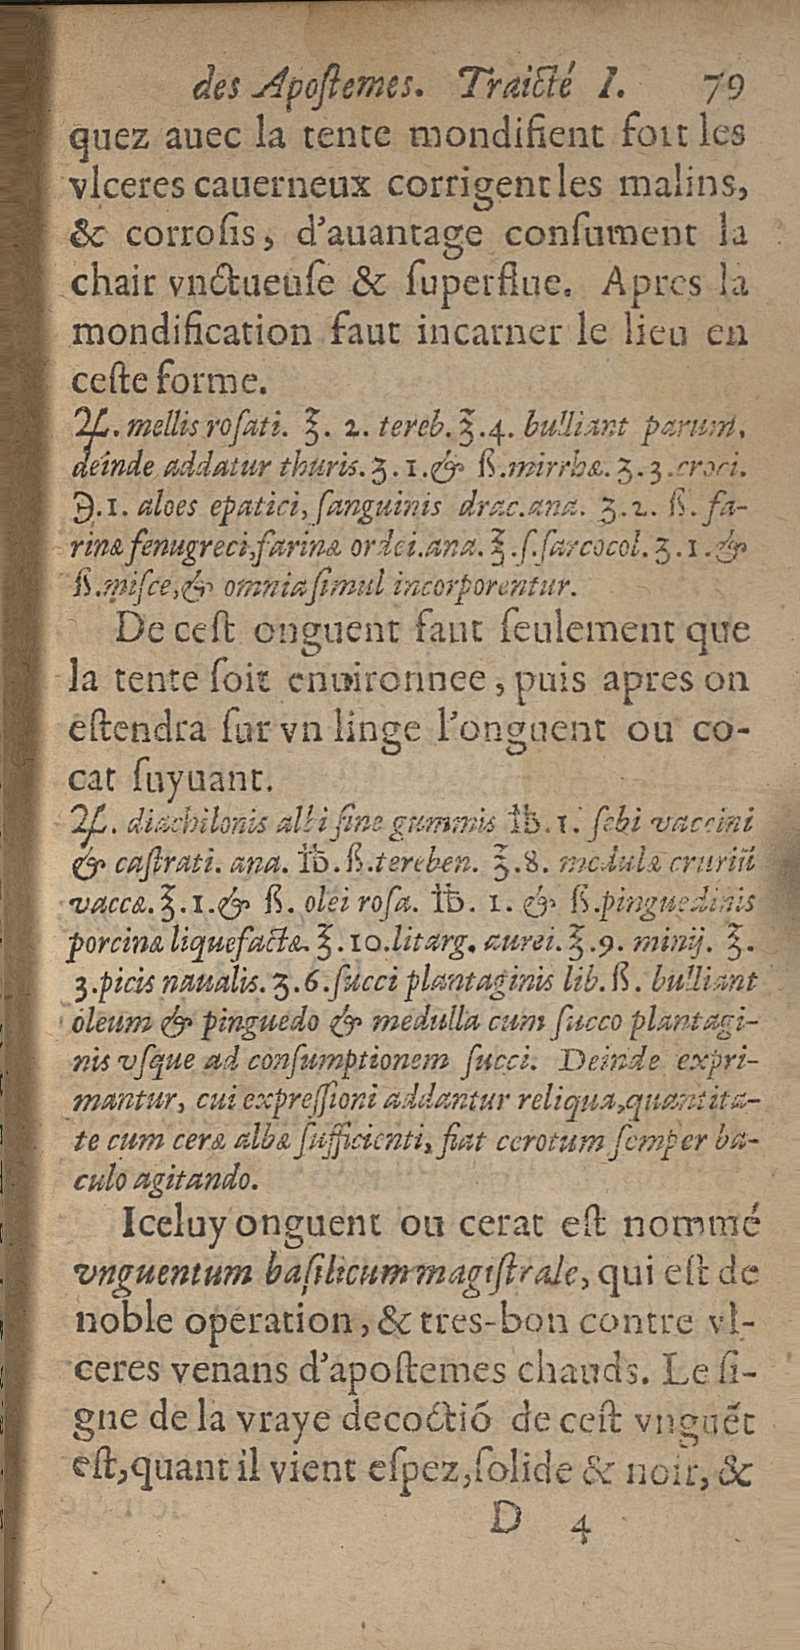 des Apoſtemes. Traicté I. 79
quez auec la tente mondifient fort les
vlceres cauerneux corrigent les malins,
& corroſis, d'auantage conſument la
chair vnctueuſe & ſuperflue. Apres la
mondification faut incarner le lieu en
ceſte forme.
♃. mellis roſati. ℥. 2. tereb. ℥.4. bulliant parum,
deinde addatur thuris. ʒ. 1.& ß.mirrhæ. ʒ. 3.croci.
℈.1. aloes epatici, ſanguinis drac.ana. ʒ.2. ß. fa-
rinæ fenugreci,farinæ ordei.ana. ℥.ſ.ſarcocol. ʒ.1.&
ß.miſce,& omnia ſimul incorporentur.
De ceſt onguent faut ſeulement que
la tente ſoit enuironnee, puis apres on
eſtendra ſur vn linge l'onguent ou co-
cat ſuyuant.
♃. diachilonis albi ſine gummis ℔.1. ſebi vaccini
& caſtrati. ana. ℔.ß.tereben. ℥.8. medulæ cruriū
vaccæ. ℥.1.& ß. olei roſa. ℔. 1. & ß.pinguedinis
porcinæ liquefactæ. ℥.10.litarg. aurei. ℥.9. minij. ℥.
3.picis naualis. ʒ.6.ſucci plantaginis lib.ß. bulliant
oleum & pinguedo & medulla cum ſucco plantagi-
nis vſque ad conſumptionem ſucci. Deinde expri-
mantur, cui expreſſioni addantur reliqua,quantita-
te cum ceræ albæ ſufficienti, fiat cerotum ſemper ba-
culo agitando.
Iceluy onguent ou cerat eſt nommé
vnguentum baſilicum magiſtrale, qui eſt de
noble operation, & tres-bon contre vl-
ceres venans d'apoſtemes chauds. Le ſi-
gne de la vraye decoctió de ceſt vnguēt
eſt,quant il vient eſpez,ſolide & noir, &
D 4